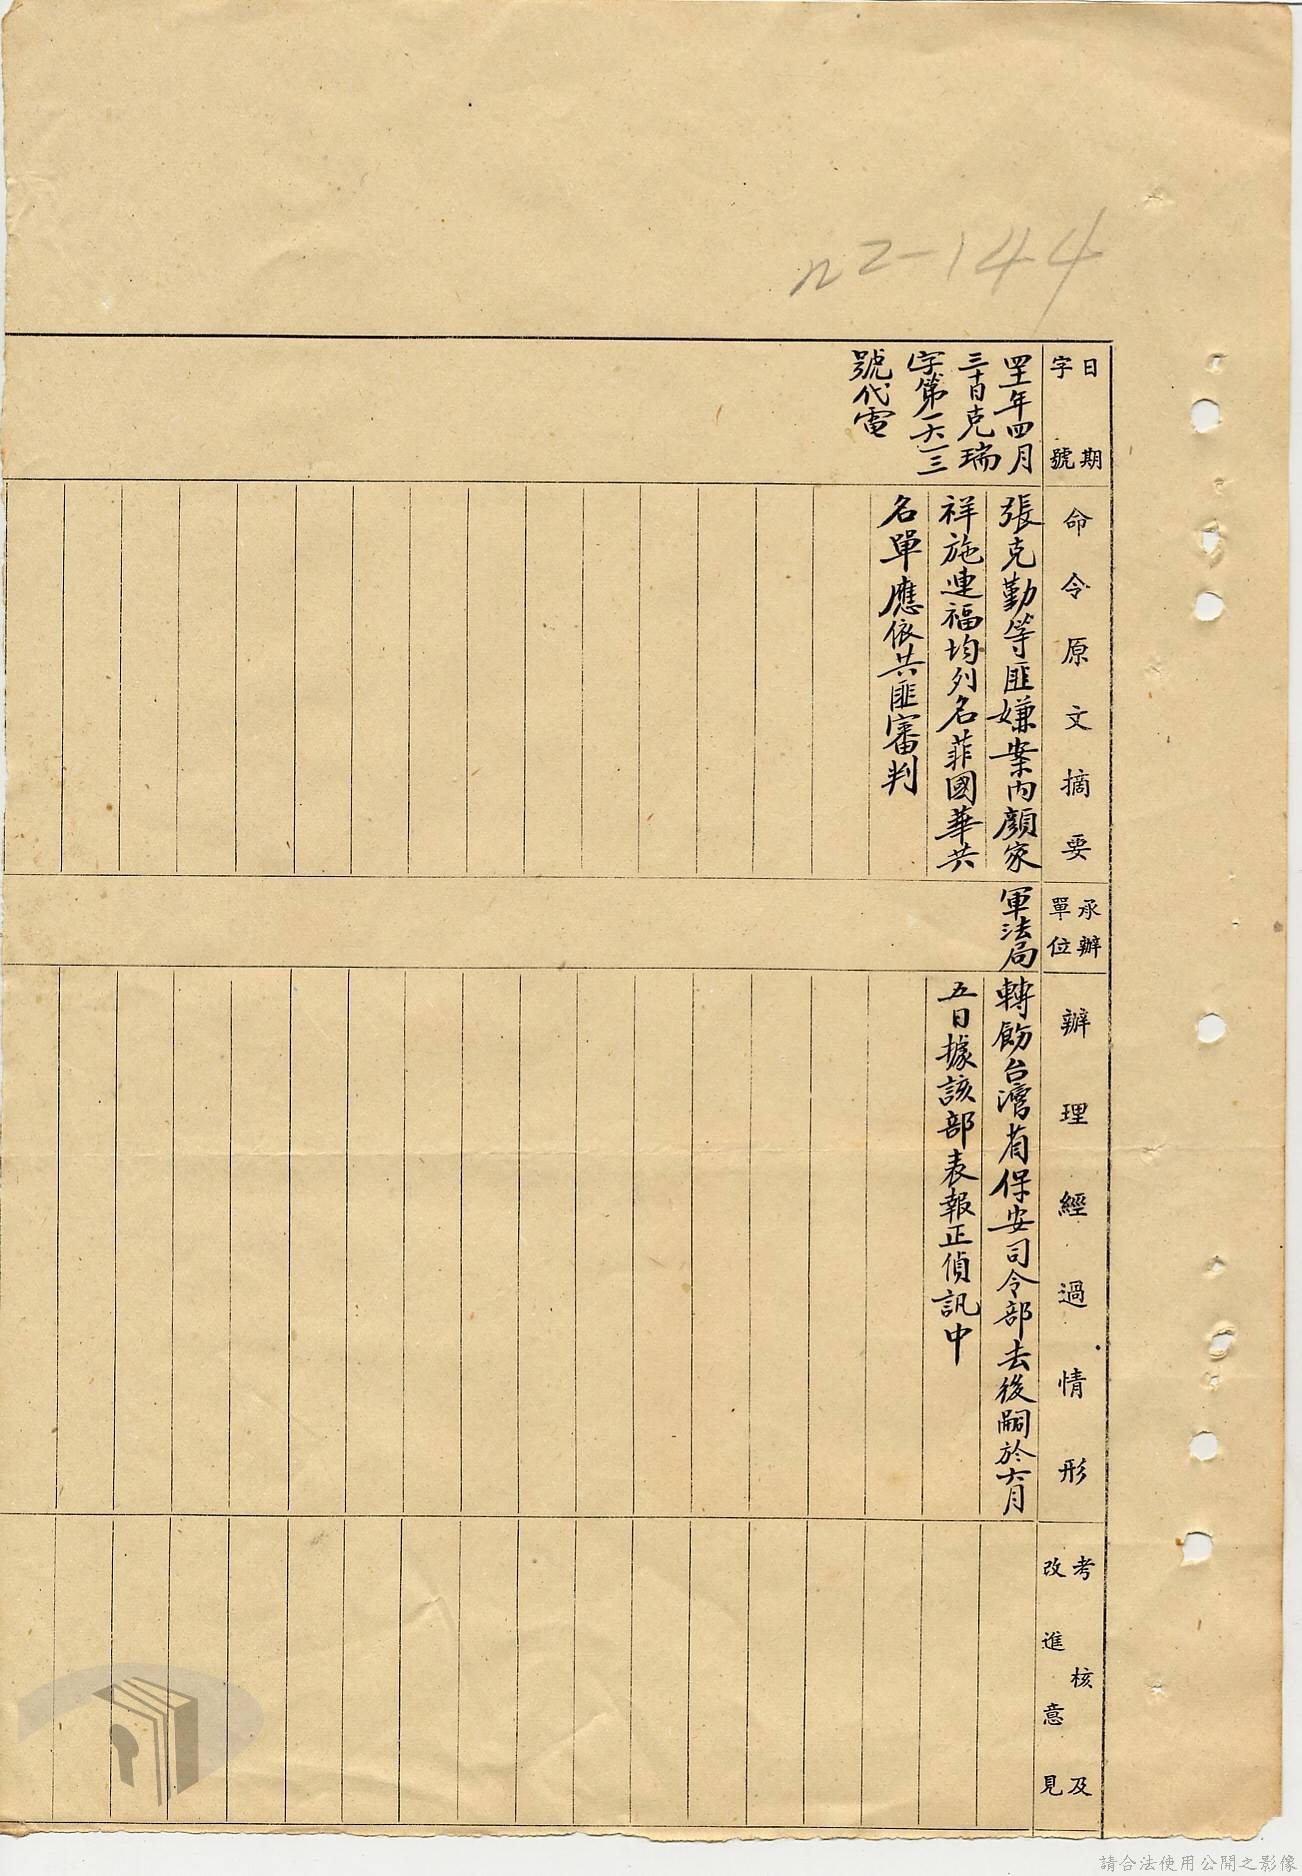 n2-144
日期
字號
四十一年四月
三十日克瑞
字第一六一三
號代電
命令原文摘要
張克勤等匪嫌案內顏家
祥施連福均列名菲國華共
名單應依共匪審判
承辦
單位
軍法局
辦理經過情形
轉飭台灣省保安司令部去後嗣於六月
五日據該部表報正偵訊中
考核及
改進意見
請合法使用公開之影像